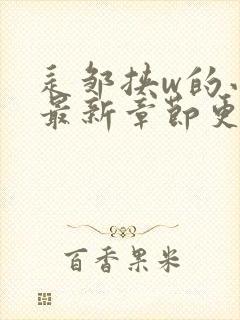 是邹挟w的小
最新章节更
百香果米